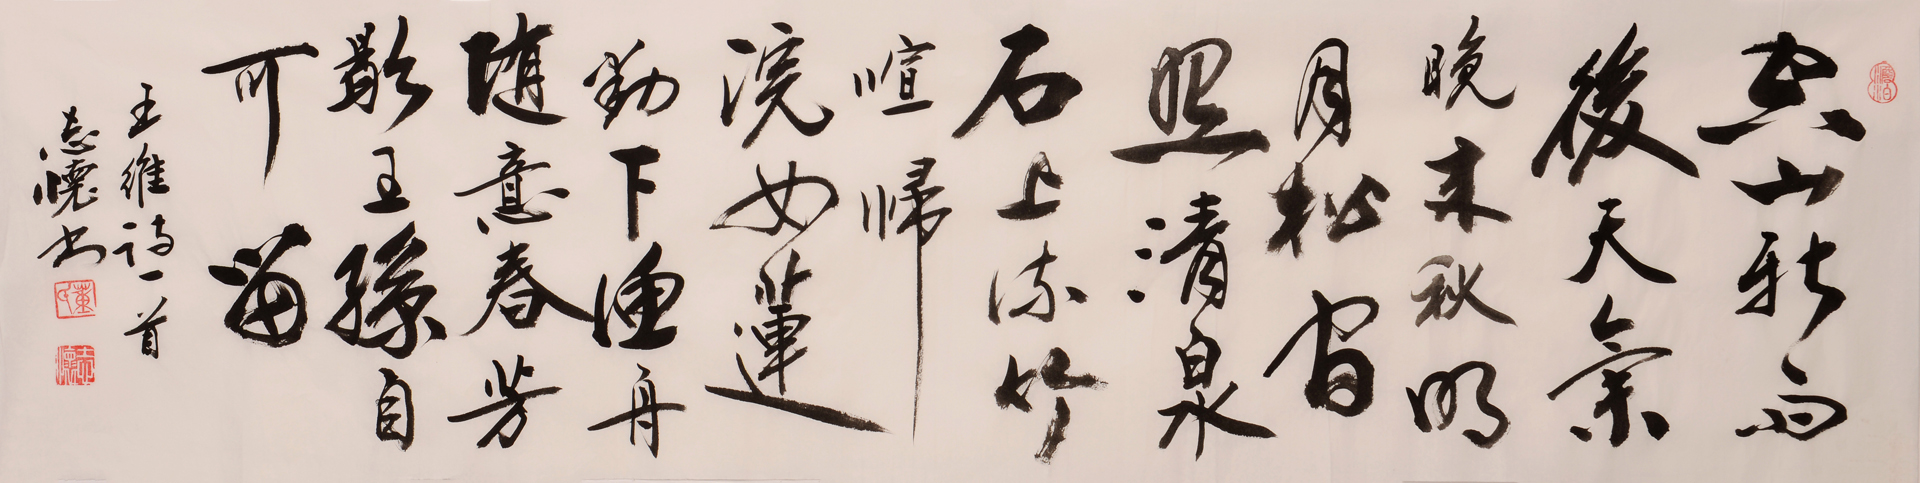 空山新雨
後天氣
晚来秋明
月松间
照清泉
石上流竹
喧歸
浣女蓮
動下漁舟
随意春芳
歇王孫自
可留
王維詩一首
志懷书
董氏
志懷